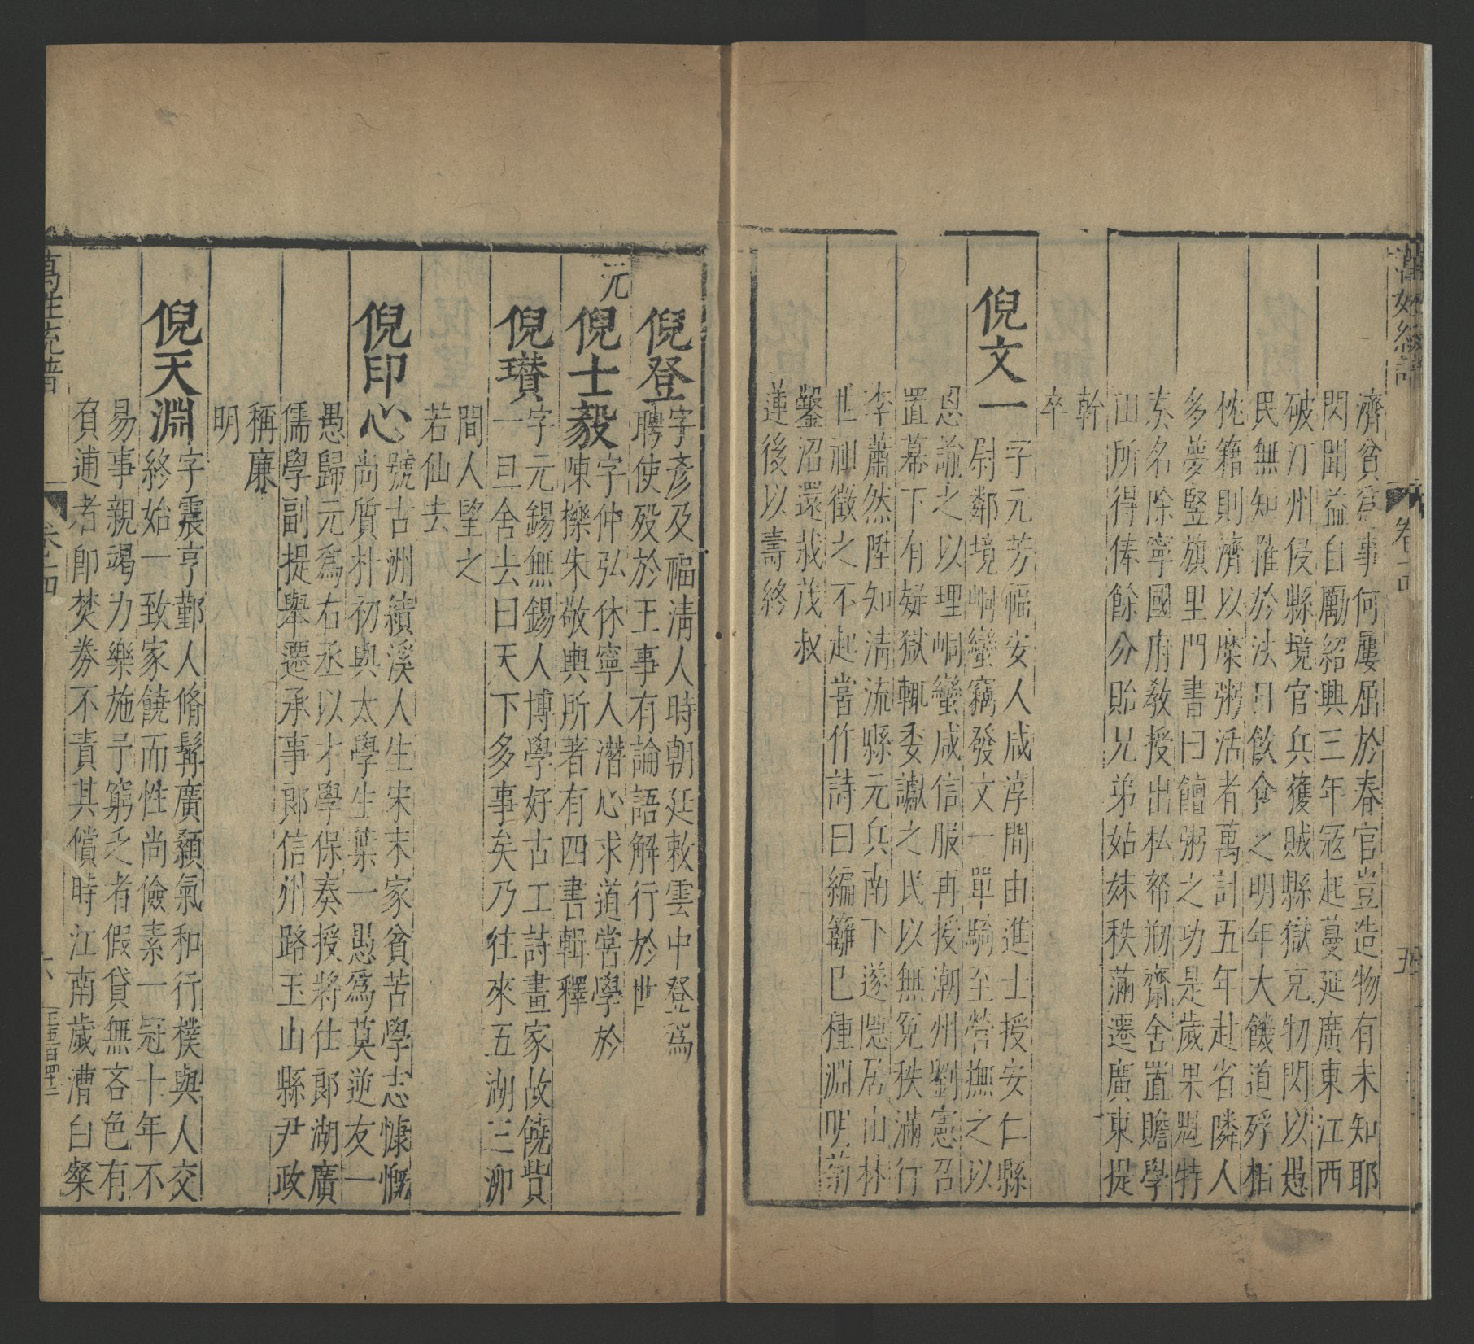 萬姓統譜
卷十四
五
濟貧寠事何屢屈於春官豈造物有未知耶
閃聞益自勵紹興三年冦起蔓延廣東江西
破汀州侵縣境官兵獲賊縣獄克物閃以愚
民無知罹於法日飲食之明年大饑道殍枕
籍則濟以糜粥活者萬計五年赴省隣人
多夢竪旗里門書曰饘粥之功是歲果魁特
奏名除寧國府教授出私帑剏齋舍置贍學
田所得俸餘分貽兄弟姑妹秩滿遷廣東提
幹
卒
倪文一
字元芳福安人咸淳間由進士授安仁縣
尉鄰境峒蠻竊發文一單騎至營撫之以
恩諭之以理峒蠻咸信服再授潮州劉憲召
置幕下有疑獄輒委讞之民以無冤秩滿行
李蕭然陞知清流縣元兵南下遂隠居山林
世祖徵之不起嘗作詩曰編籬已種淵明菊
鑿沼還栽茂叔
蓮後以壽終
倪登
字彥及福清人時朝延敕雲中登爲
聘使殁於王事有論語解行於世
元
倪士毅
字仲弘休寧人潜心求道嘗學於
陳櫟朱敬輿所著有四書輯釋
倪瓚
字元錫無錫人博學好古工詩畫家故饒貲
一旦舍去曰天下多事矣乃往來五湖三泖
間人望之
若仙去
倪印心
號古洲績溪人生宋末家貧苦學志慷慨
尚質朴初與太學生葉一愚爲莫逆友一
愚歸元爲右丞以才學保奏授將仕郎湖廣
儒學副提舉遷承事郎信州路玉山縣尹政
稱廉
明
倪天淵
字震亨鄞人脩髯廣顙氣和行樸與人交
終始一致家饒而性尚儉素一冠十年不
易事親竭力樂施予窮乏者假貸無吝色有
負逋者卽焚劵不責其償時江南歲漕白粲
萬姓統譜
卷十四
六